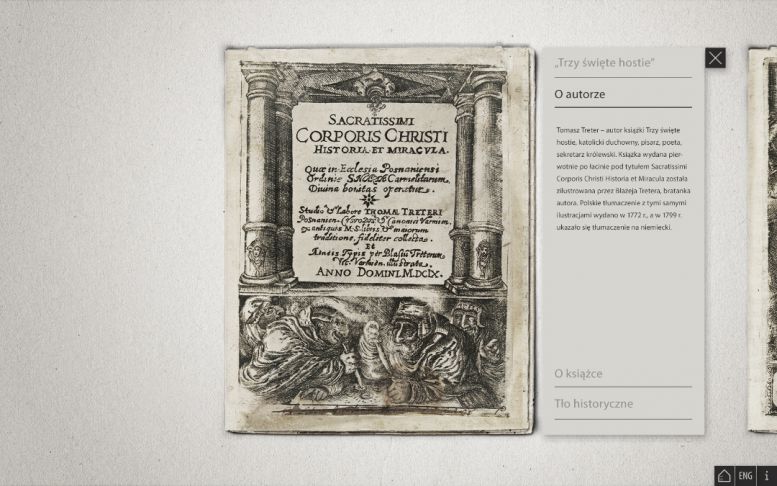 SACRATISSIMI
CORPORIS CHRISTI
HISTORIA ET MIRACVLA.
Quæ in Ecclesia Posnaniensi
Ordinis Carmelitarum,
Divina bonitas operatur.
Studio & Labore THOMÆ TRETERI
Posnanien. Custodis & Canonici Varmien.
ex antiquis M.S. libris & maiorum
traditione, fideliter collecta.
Et
Æneis Typis per Blasiũ Treterum
Varmien. illustrata.
ANNO DOMINI. M.DCIX.
„Trzy święte hostie”
O autorze
Tomasz Treter – autor książki Trzy święte
hostie, katolicki duchowny, pisarz, poeta,
sekretarz królewski. Książka wydana pier-
wotnie po łacinie pod tytułem Sacratissimi
Corporis Christi Historia et Miracula została
zilustrowana przez Błażeja Tretera, bratanka
autora. Polskie tłumaczenie z tymi samymi
ilustracjami wydano w 1772 r., a w 1799 r.
ukazało się tłumaczenie na niemiecki.
O książce
Tło historyczne
ENG
i